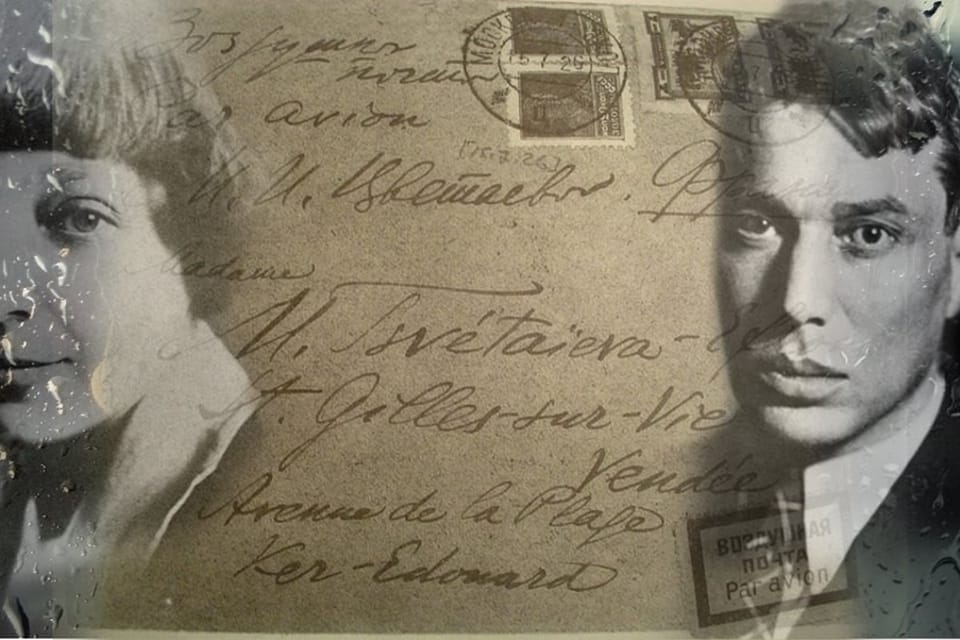 Воздушная
почта
Par avion
МОСКВА
15 7 26
[15.7.26]
М. И. Цветаевой. Франция
Madame
M. Tsvétaïeva-
St. Gilles-sur-Vie
Vendée
Avenue de la Plage
Ker-Edouard
ВОЗДУШНАЯ
ПОЧТА
Par avion